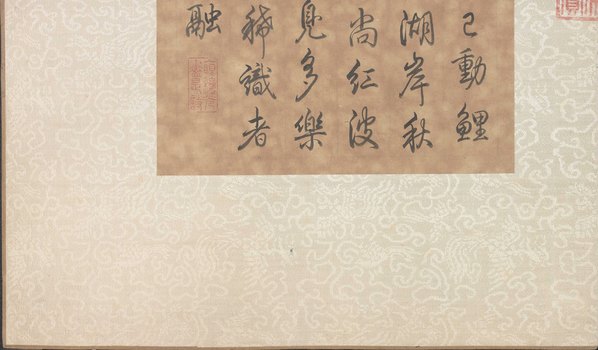 已動鯉
湖岸秋
尚紅波
見多樂
稀識者
融